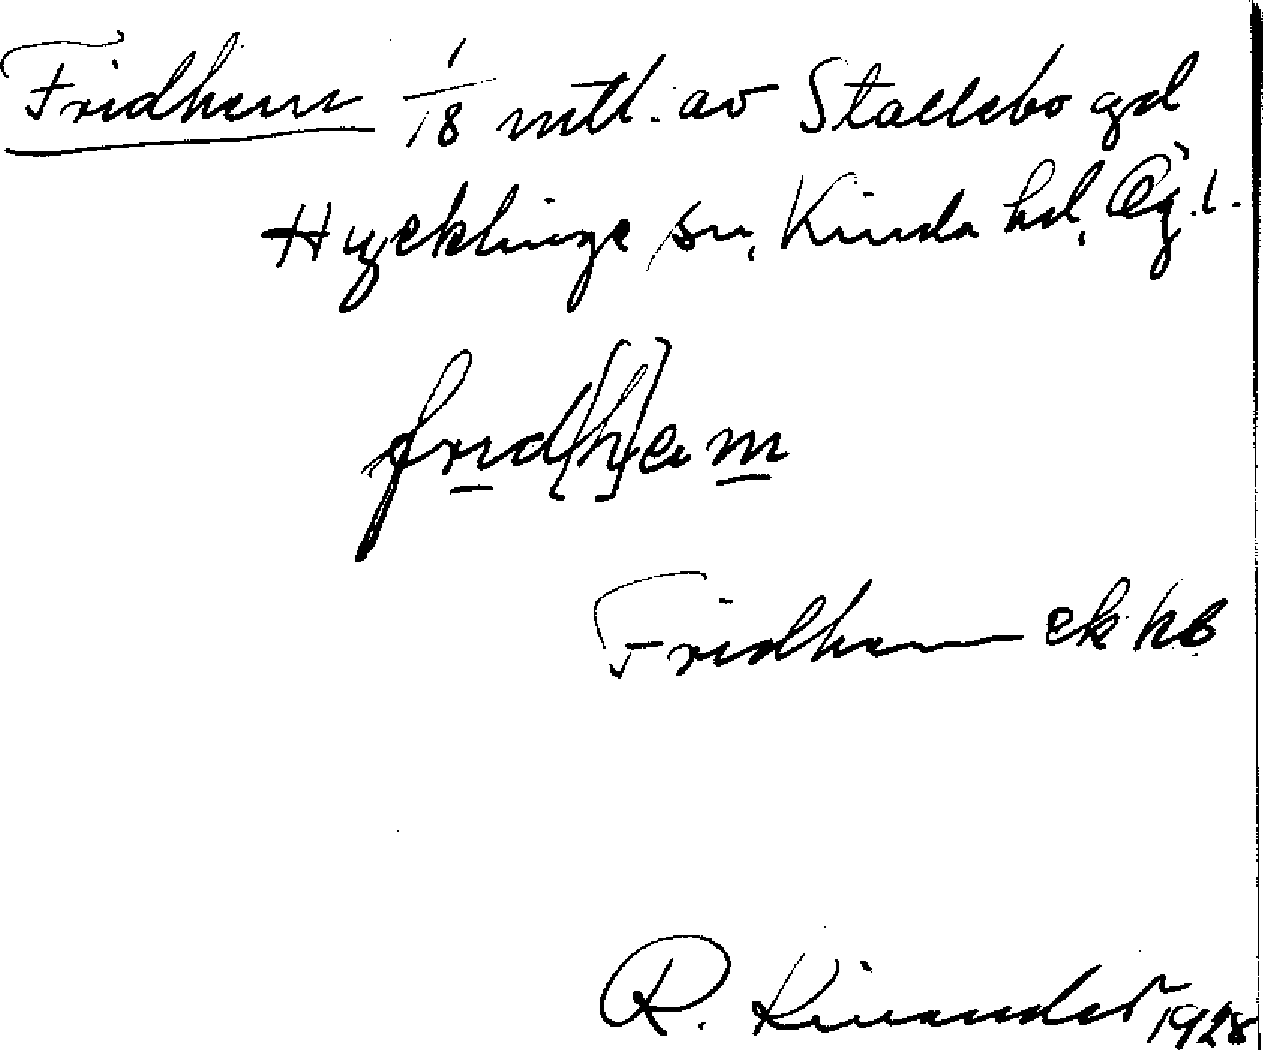 Fridhem 1/18 mtl. av Stallebo gd
Hycklinge sn, Kinda hd, Ög.l.
frid[h]em
Fridhem ek kb
R. Kinander 1928